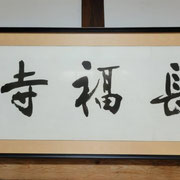 長福寺